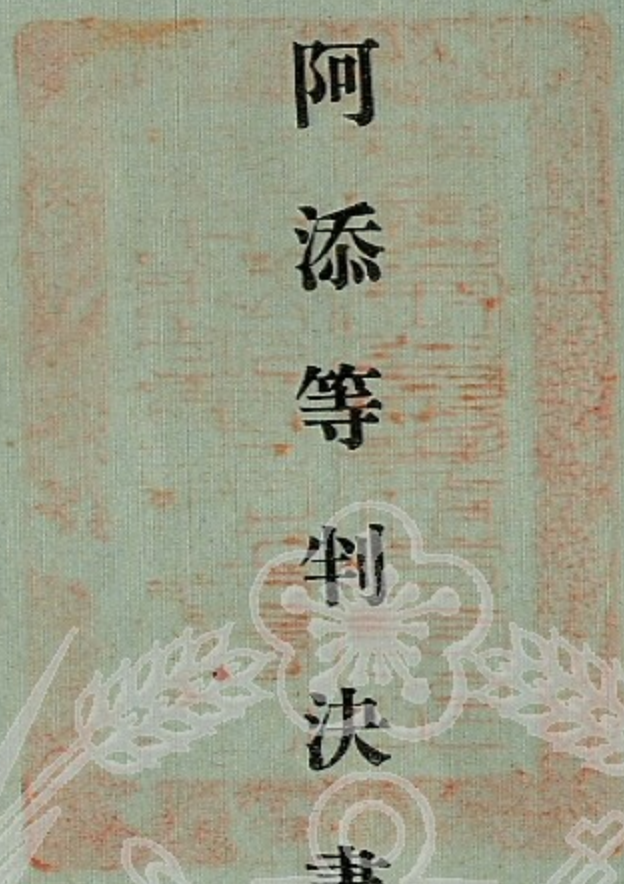 阿添等判決書